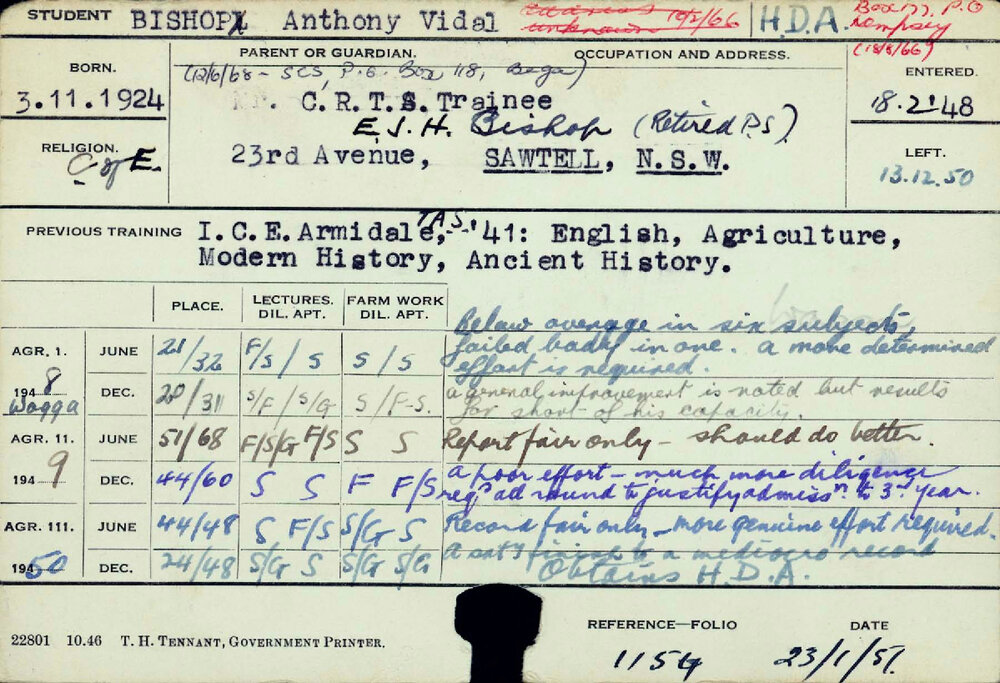 STUDENT BISHOP Anthony Vidal address unknown 10/2/66 H.D.A. Box 77, P.O Kempsey (18/8/66)
BORN. PARENT OR GUARDIAN. OCCUPATION AND ADDRESS. ENTERED.
(12/6/68 - SCS, P.O. Box 118, Bega)
3.11.1924 C.R.T.S. Trainee 18.2.48
E J.H. Bishop (Retired P.S)
RELIGION. C of E. 23rd Avenue, SAWTELL, N.S.W. LEFT. 13.12.50
PREVIOUS TRAINING I.C.E. Armidale, TAS. '41: English, Agriculture,
Modern History, Ancient History.
PLACE. LECTURES. DIL. APT. FARM WORK DIL. APT.
AGR. 1. JUNE 21/32 F/S / S S / S Below average in six subjects,
failed badly in one. A more determined
effort is required.
1948 Wagga DEC. 20/311 S/F / S/G S / F-S. A general improvement is noted but results
far short of his capacity.
AGR. 11. JUNE 51/68 F/S/G F/S S S Report fair only - should do better.
1949 DEC. 44/60 S S F F/S A poor effort - much more diligence
reqd all round to justify admissn to 3rd year.
AGR. 111. JUNE 44/48 S F/S S/G S Record fair only - more genuine effort required.
1950 DEC. 24/48 S/G S S/G S/G A sat'y finish to a mediocre record
Obtains H.D.A.
22801 10.46 T. H. TENNANT, GOVERNMENT PRINTER.
REFERENCE—FOLIO DATE
1154 23/1/51.